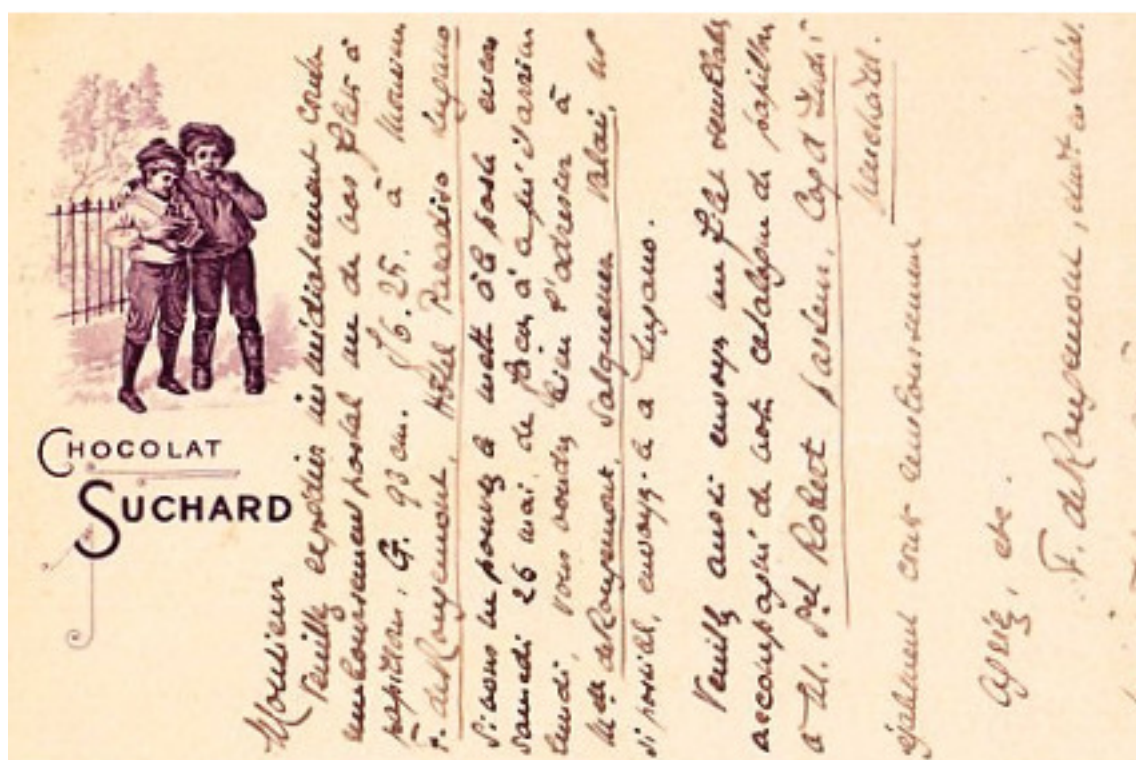 CHOCOLAT
SUCHARD
Monsieur
Veuillez expédier immédiatement contre
remboursement postal un de vos filets à
papillons, G. 93 cm. 6.25. à Monsieur
F. de Rougemont, Hôtel Paradiso Lugano
Si vous ne pouvez le mettre à la poste encore
samedi 26 mai, de façon à qu'il arrive
lundi, vous voudrez bien l'adresser à
de Rougemont, Salquenen Valais,
si possible, envoyez-le à Lugano.
Veuillez aussi envoyer un filet semblable
accompagné de votre catalogue de papillons
à M. Robert pasteur,
Neuchâtel.
également contre remboursement
Agréez, etc.
F. de Rougemont,